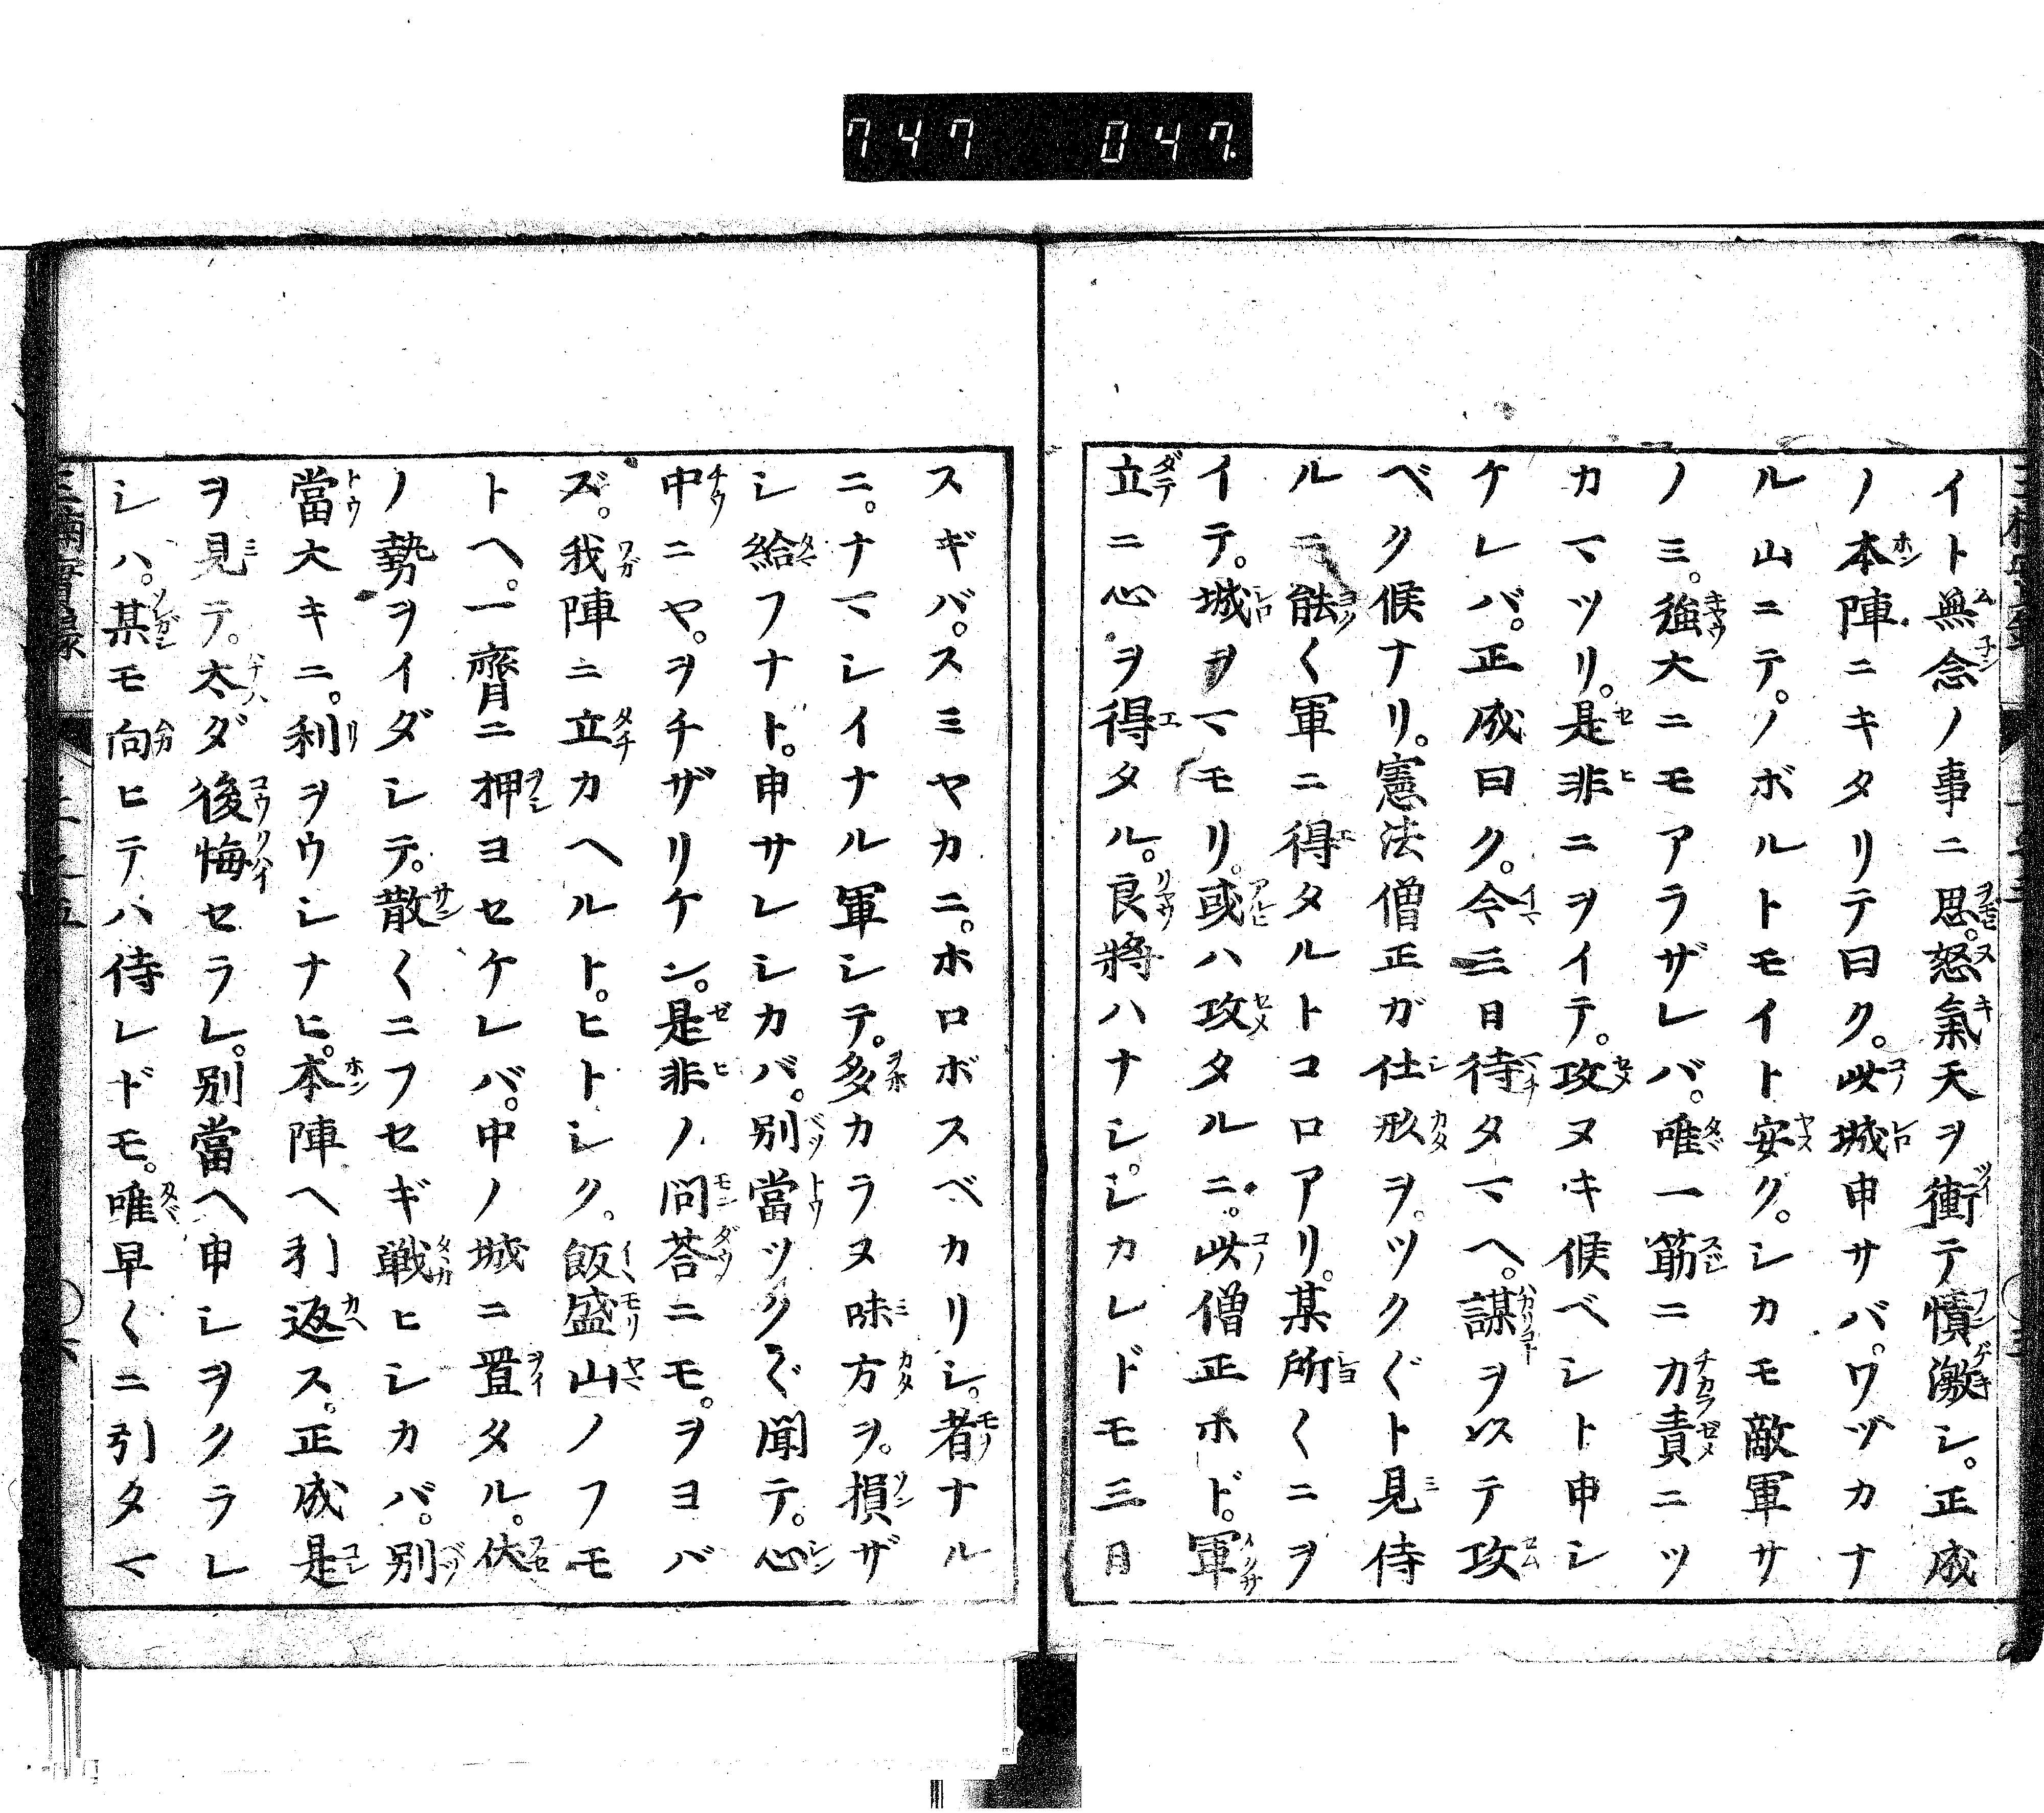 747 047
イト無念ノ事ニ思。怒氣天ヲ衝テ憤激シ。正成
ノ本陣ニキタリテ曰ク。此城申サバ。ワヅカナ
ル山ニテ。ノボルトモイト安ク。シカモ敵軍サ
ノミ。強大ニモアラザレバ。唯一筋ニ力責ニツ
カマツリ。是非ニヲイテ。攻ヌキ候ベシト申シ
ケレバ。正成曰ク。今三日待タマヘ。謀ヲ以テ攻
ベク候ナリ。憲法僧正ガ仕形ヲ。ツクヾト見侍
ルニ能く軍ニ得タルトコロアリ。某所〱ニヲ
イテ。城ヲマモリ。或ハ攻タルニ。此僧正ホド。軍
立ニ心ヲ得タル。良將ハナシ。シカレドモ三日
スギバ。スミヤカニ。ホロボスベカリシ。者ナル
ニ。ナマシイナル軍シテ。多カラヌ味方ヲ。損ザ
シ給フナト。申サレシカバ。別當ツクヾ聞テ。心
中ニヤ。ヲチザリケン。是非ノ問荅ニモ。ヲヨバ
ズ。我陣ニ立カヘルト。ヒトシク。飯盛山ノフモ
トヘ。一齊ニ押ヨセケレバ。中ノ城ニ置タル。伏
ノ勢ヲイダシテ。散〱ニフセギ戦ヒシカバ。別
當大キニ。利ヲウシナヒ。本陣ヘ引返ス。正成是
ヲ見テ。太ダ後悔セラレ。別當ヘ申シヲクラレ
シハ。某モ向ヒテバ侍レドモ。唯早〱ニ引タマ